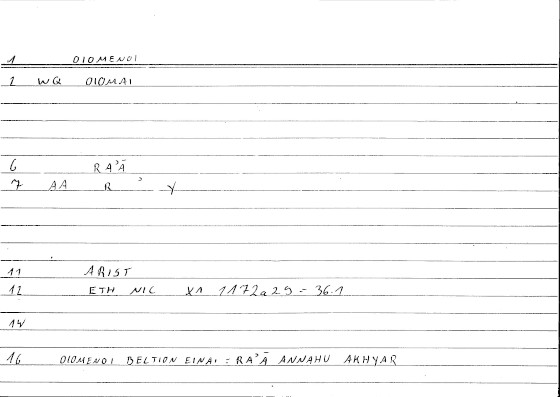 1 OIOMENOI
2 WQ OIOMAI
6 RA'Ā
7 AA R ' Y
11 ARIST
12 ETH NIC X1 1172a29 = 36.1
14
16 OIOMENOI BELTION EINAI = RA'Ā ANNAHU AKHYAR